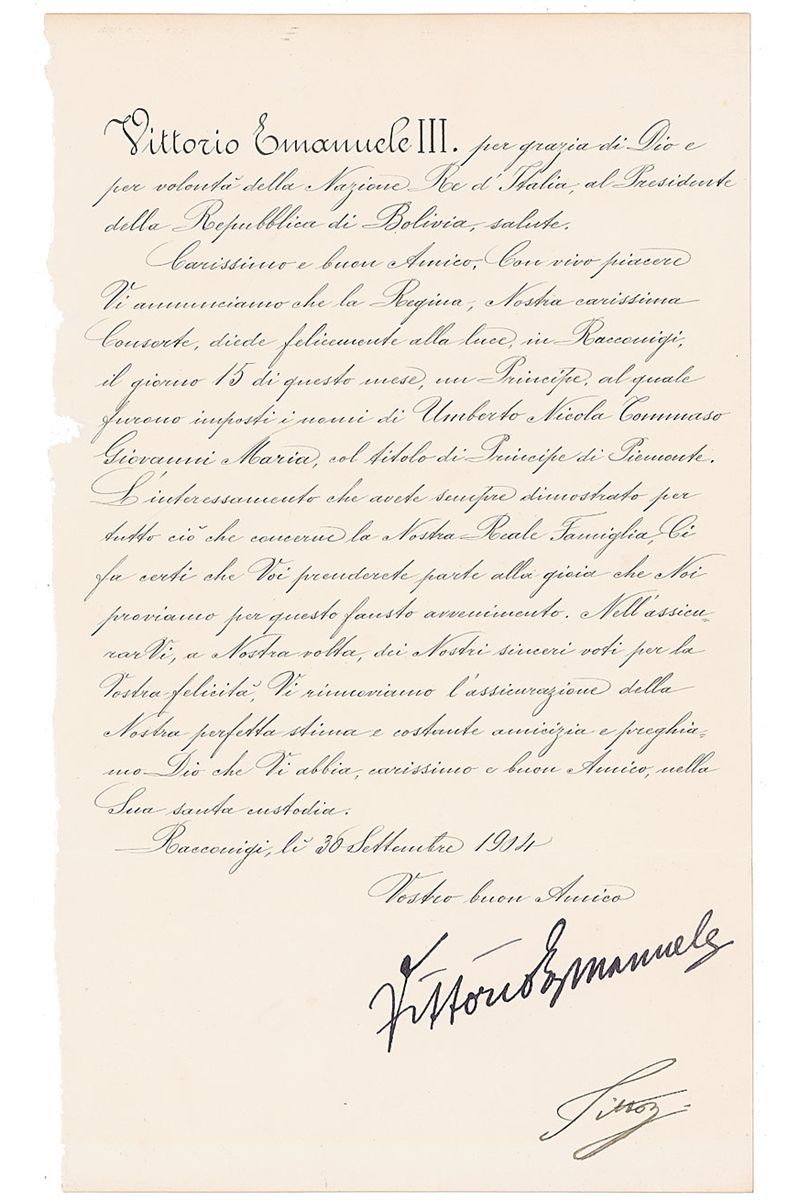 Vittorio Emanuele III. per grazia di Dio e
per volontà della Nazione Re d'Italia, al Presidente
della Repubblica di Bolivia, salute.
Carissimo e buon Amico, Con vivo piacere
Vi annunciamo che la Regina, Nostra carissima
Consorte, diede felicemente alla luce, in Racconigi,
il giorno 15 di questo mese, un Principe, al quale
furono imposti i nomi di Umberto Nicola Tommaso
Giovanni Maria, col titolo di Principe di Piemonte.
L'interessamento che avete sempre dimostrato per
tutto ciò che concerne la Nostra Reale Famiglia, Ci
fa certi che Voi prenderete parte alla gioia che Noi
proviamo per questo fausto avvenimento. Nell'assicu=
rarVi, a Nostra volta, dei Nostri sinceri voti per la
Vostra felicità, Vi rinnoviamo l'assicurazione della
Nostra perfetta stima e costante amicizia e preghia=
mo Dio che Vi abbia, carissimo e buon Amico, nella
Sua santa custodia.
Racconigi, lì 30 Settembre 1904
Vostro buon Amico
Vittorio Emanuele